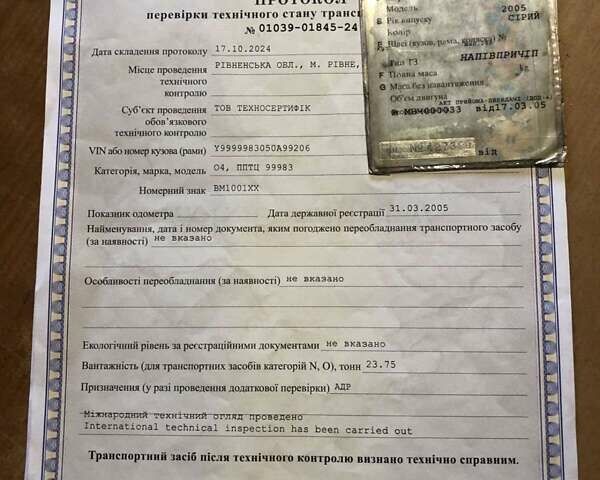 ПРОТОКОЛ
перевірки технічного стану
№ 01039-01845-24
Дата складення протоколу 17.10.2024
Місце проведення технічного контролю РІВНЕНСЬКА ОБЛ., М. РІВНЕ,
Суб'єкт проведення обов'язкового технічного контролю ТОВ ТЕХНОСЕРТИФІК
VIN або номер кузова (рами) Y9999983050A99206
Категорія, марка, модель O4, ППТЦ 99983
Номерний знак BM1001XX
Показник одометра Дата державної реєстрації 31.03.2005
Найменування, дата і номер документа, яким погоджено переобладнання транспортного засобу
(за наявності) не вказано
Особливості переобладнання (за наявності) не вказано
Екологічний рівень за реєстраційними документами не вказано
Вантажність (для транспортних засобів категорій N, O), тонн 23.75
Призначення (у разі проведення додаткової перевірки) АДР
Міжнародний технічний огляд проведено
International technical inspection has been carried out
Транспортний засіб після технічного контролю визнано технічно справним.
Модель 2005
B Рік випуску СІРИЙ
Колір
E Шасі (кузов, рама, коляска) №
Тип ТЗ НАПІВПРИЧІП
F Повна маса kg
G Маса без навантаження
Об'єм двигуна
від 17.03.05
від